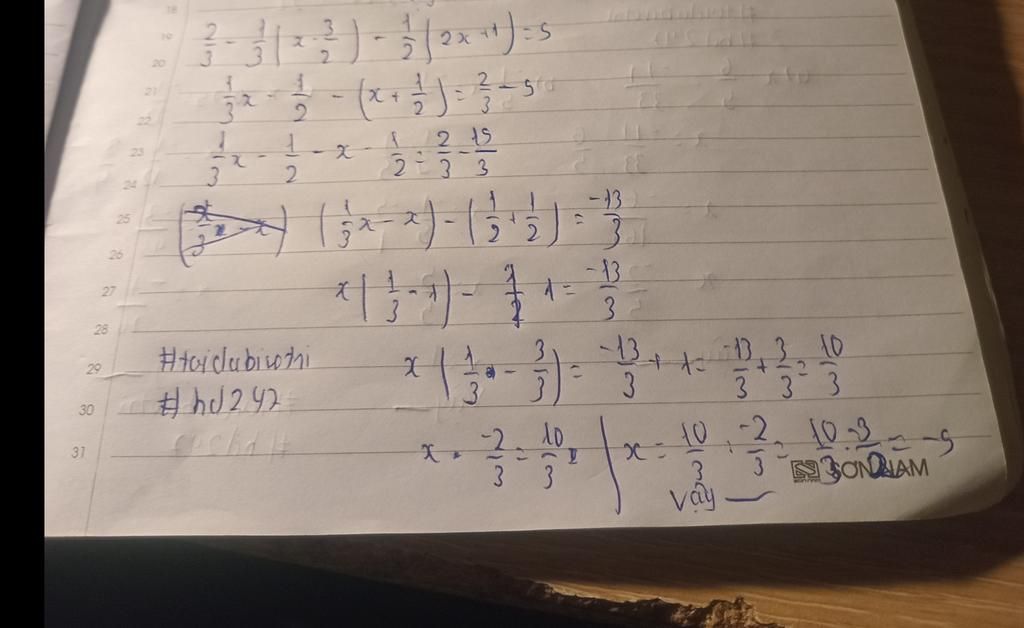 18
19 2/3 - 1/3 ( x - 3/2 ) - 1/2 ( 2x + 1 ) = 5
20
21 1/3 x - 1/2 - ( x + 1/2 ) = 2/3 - 5
22
23 1/3 x - 1/2 - x - 1/2 = 2/3 - 15/3
24
25 ( 1/3 x - x ) - ( 1/2 + 1/2 ) = -13/3
26
27 x ( 1/3 - 1 ) - 1 = -13/3
28
29 #taidabiwthi x ( 1/3 - 3/3 ) = -13/3 + 1 = -13/3 + 3/3 = 10/3
30 #hd247
31 x . -2/3 = 10/3 x = 10/3 : -2/3 = 10/3 . -3/2 = -5
SONNAM
Vậy —